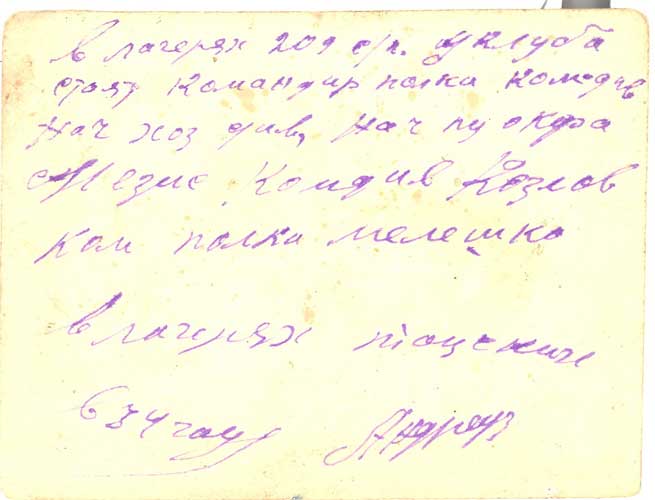 в лагерях 209 сп. у клуба
стоят командир полка комдив
нач хоз див, нач пу округа
Мезис Комдив Козлов
ком полка мелешко
в лагерях тоцских
в 34 году Андрей